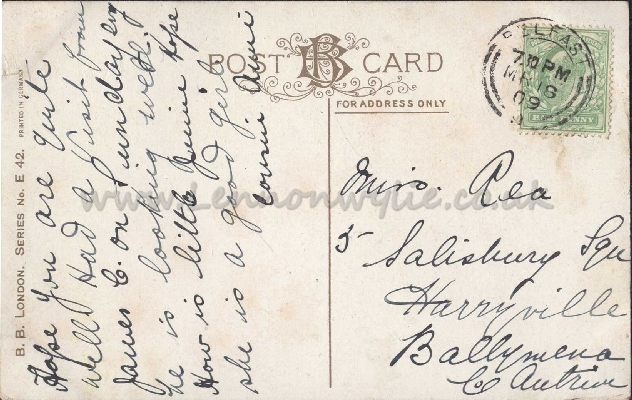 POST CARD
BB
FOR ADDRESS ONLY
BELFAST
7.10 PM
MR 16
09
HALFPENNY
B. B. LONDON. SERIES No. E 42. PRINTED IN GERMANY
Hope you are quite
well Had a visit from
James C. on Sunday evg
he is looking well.
How is little Annie hope
she is a good girl
Cousin Annie
Miss. Rea
5 Salisbury Squ
Harryville
Ballymena
Co Antrim
www.Lennonwylie.co.uk